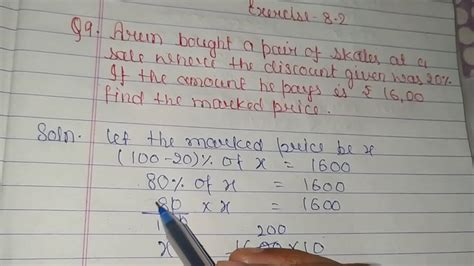 Exercise-8.2
Q9. Arun bought a pair of skates at a
sale where the discount given was 20%
If the amount he pays is ₹ 16,00
find the marked price.
Soln. let the marked price be x
(100-20)% of x = 1600
80% of x = 1600
80 × x = 1600
200
x 1600×10